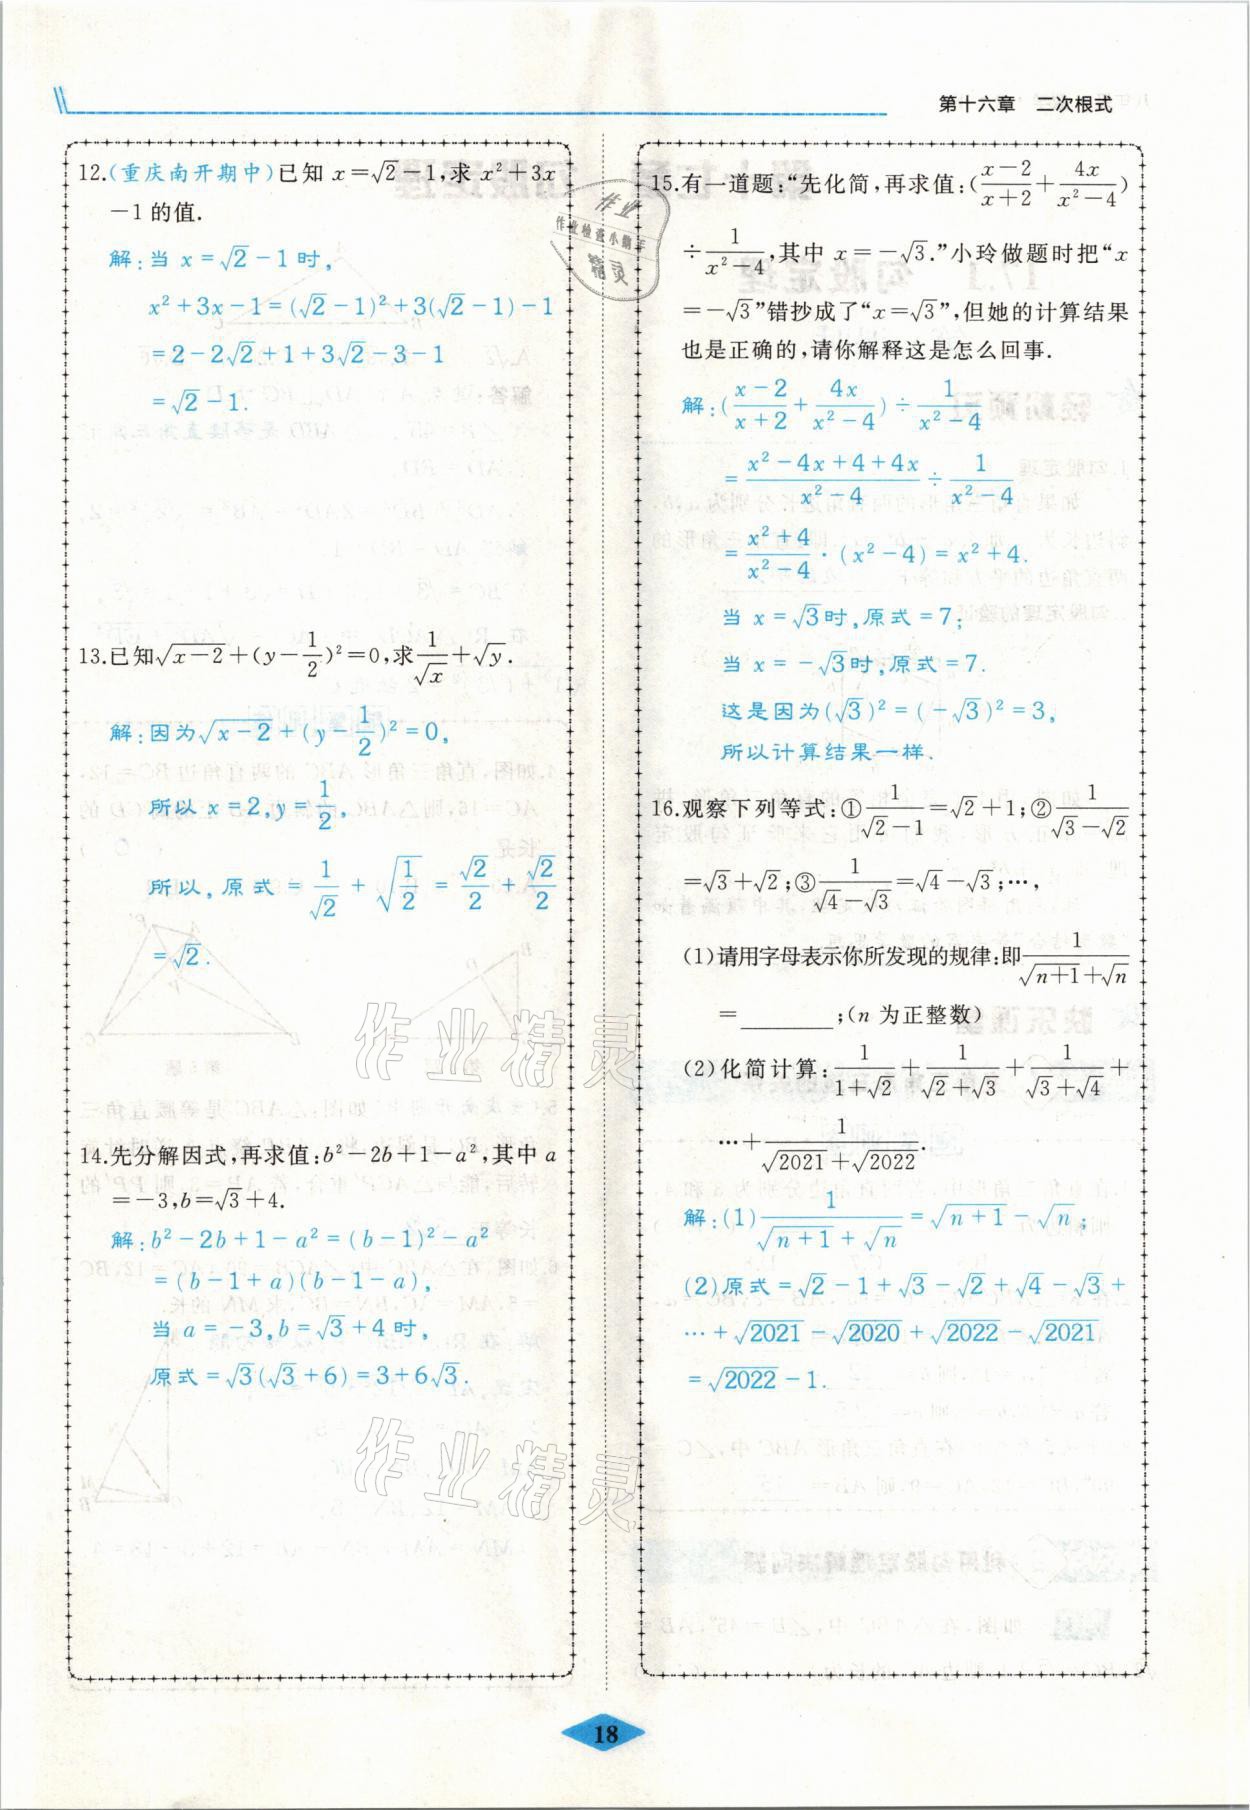 第十六章 二次根式
12.(重庆南开期中)已知 x=√2-1,求 x²+3x
-1 的值.
解:当 x=√2-1时,
x²+3x-1=(√2-1)²+3(√2-1)-1
=2-2√2+1+3√2-3-1
=√2-1.
13.已知√(x-2)+(y-1/2)²=0,求1/√x+√y.
解:因为√(x-2)+(y-1/2)²=0,
所以x=2,y=1/2,
所以,原式=1/√2+√(1/2)=√2/2+√2/2
=√2.
14.先分解因式,再求值:b²-2b+1-a²,其中 a
=-3,b=√3+4.
解:b²-2b+1-a²=(b-1)²-a²
=(b-1+a)(b-1-a),
当a=-3,b=√3+4时,
原式=√3(√3+6)=3+6√3.
15.有一道题:“先化简,再求值:((x-2)/(x+2)+4x/(x²-4))
÷1/(x²-4),其中 x=-√3.”小玲做题时把“x
=-√3”错抄成了“x=√3”,但她的计算结果
也是正确的,请你解释这是怎么回事.
解:((x-2)/(x+2)+4x/(x²-4))÷1/(x²-4)
=(x²-4x+4+4x)/(x²-4)÷1/(x²-4)
=(x²+4)/(x²-4)·(x²-4)=x²+4.
当x=√3时,原式=7;
当x=-√3时,原式=7.
这是因为(√3)²=(-√3)²=3,
所以计算结果一样.
16.观察下列等式:①1/(√2-1)=√2+1;②1/(√3-√2)
=√3+√2;③1/(√4-√3)=√4-√3;…,
(1)请用字母表示你所发现的规律:即1/(√(n+1)+√n)
=________;(n 为正整数)
(2)化简计算:1/(1+√2)+1/(√2+√3)+1/(√3+√4)+
…+1/(√2021+√2022).
解:(1)1/(√(n+1)+√n)=√(n+1)-√n;
(2)原式=√2-1+√3-√2+√4-√3+
…+√2021-√2020+√2022-√2021
=√2022-1.
作业
作业检查小帮手
精灵
作业精灵
作业精灵
18